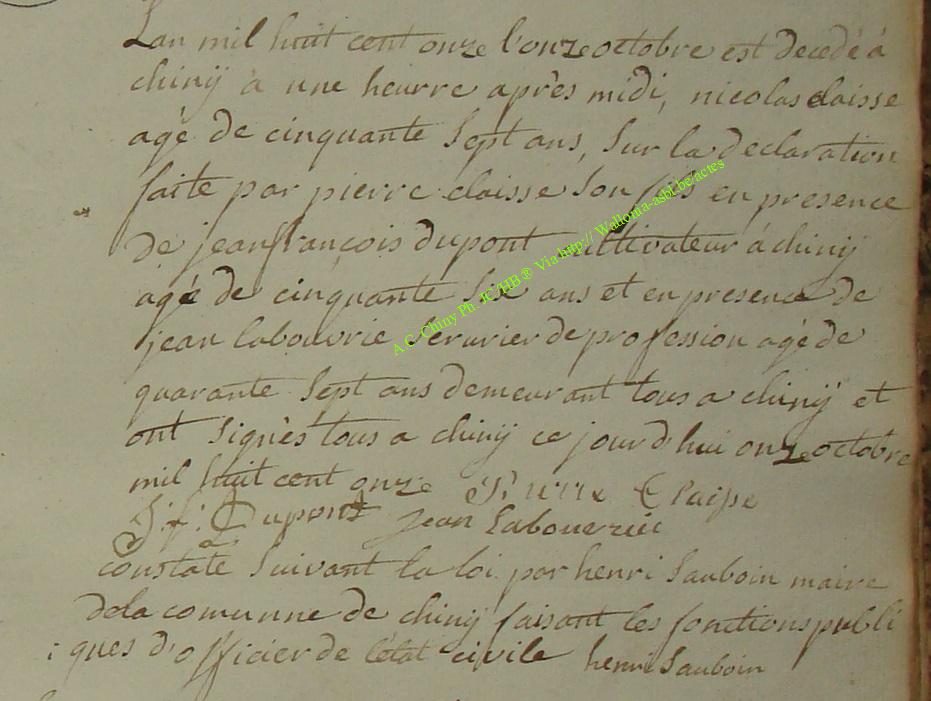 Lan mil huit cent onze l'onze octobre est decedé à
chinÿ à une heurre après midi, nicolas claisse
agé de cinquante Sept ans, Sur la declaration
faite par pierre claisse Son fils en presence
de jean françois dupont cultivateur à chinÿ
agé de cinquante Six ans et en presence de
jean labouvrie Serurier de profession agé de
quarante Sept ans demeurant tous a chinÿ et
ont Signès tous a chinÿ ce jourd'hui onze octobre
mil huit cent onze Pierre Claisse
J: f: Dupont Jean Labouerie
constaté Suivant la loi par henri Sauboin maire
dela comunne de chinÿ faisant les fonctions publi
:ques d'officier de l'état civile henri Sauboin
A.C. Chiny Ph. JC/HB® Via http:// Wallonia-asbl.be/actes